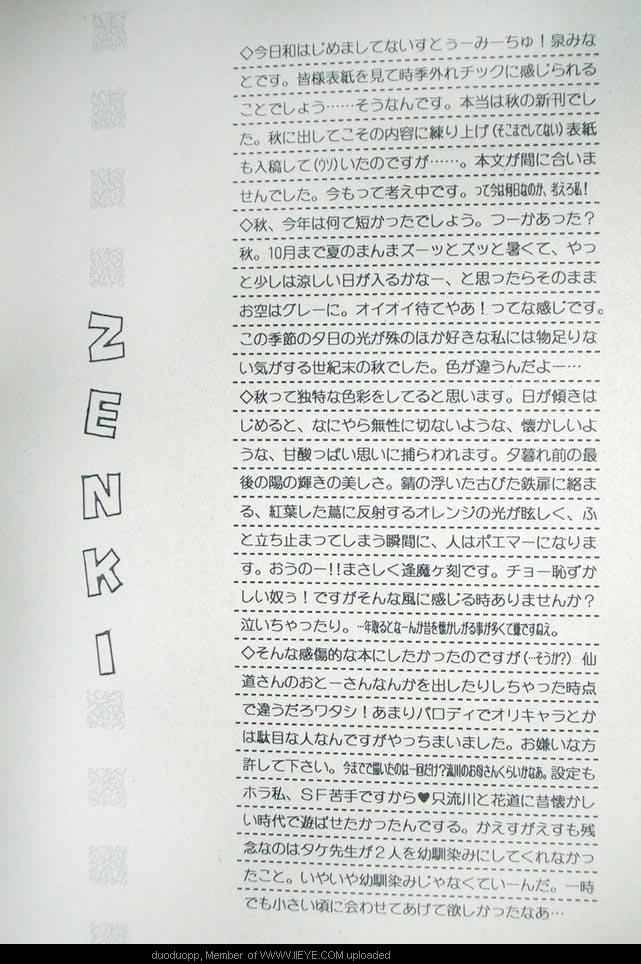 ZENKI
◇今日和はじめましてないすとぅーみーちゅ！泉みな
とです。皆様表紙を見て時季外れチックに感じられる
ことでしょう……そうなんです。本当は秋の新刊でし
た。秋に出してこその内容に練り上げ(そこまでしてない)表紙
も入稿して(ウソ)いたのですが……。本文が間に合いま
せんでした。今もって考え中です。って今は何日なのか、考えろ私！
◇秋、今年は何て短かったでしょう。つーかあった？
秋。10月まで夏のまんまズーッとズッと暑くて、やっ
と少しは涼しい日が入るかなー、と思ったらそのまま
お空はグレーに。オイオイ待てやあ！ってな感じです。
この季節の夕日の光が殊のほか好きな私には物足りな
い気がする世紀末の秋でした。色が違うんだよー…
◇秋って独特な色彩をしてると思います。日が傾きは
じめると、なにやら無性に切ないような、懐かしいよ
うな、甘酸っぱい思いに捕らわれます。夕暮れ前の最
後の陽の輝きの美しさ。錆の浮いた古びた鉄扉に絡ま
る、紅葉した蔦に反射するオレンジの光が眩しく、ふ
と立ち止まってしまう瞬間に、人はポエマーになりま
す。おうのー!!まさしく逢魔ヶ刻です。チョー恥ずか
しい奴ぅ！ですがそんな風に感じる時ありませんか？
泣いちゃったり。…年取るとなーんか昔を懐かしがる事が多くて嫌ですねえ。
◇そんな感傷的な本にしたかったのですが(…そうか?)　仙
道さんのおとーさんなんかを出したりしちゃった時点
で違うだろワタシ！あまりパロディでオリキャラとか
は駄目な人なんですがやっちまいました。お嫌いな方
許して下さい。今までで描いたのは一回だけ？流川のお母さんくらいかなあ。設定も
ホラ私、ＳＦ苦手ですから♥只流川と花道に昔懐かし
い時代で遊ばせたかったんでする。かえすがえすも残
念なのはタケ先生が２人を幼馴染みにしてくれなかっ
たこと。いやいや幼馴染みじゃなくていーんだ。一時
でも小さい頃に会わせてあげて欲しかったなあ…
duoduopp, Member of WWW.IIEYE.COM uploaded